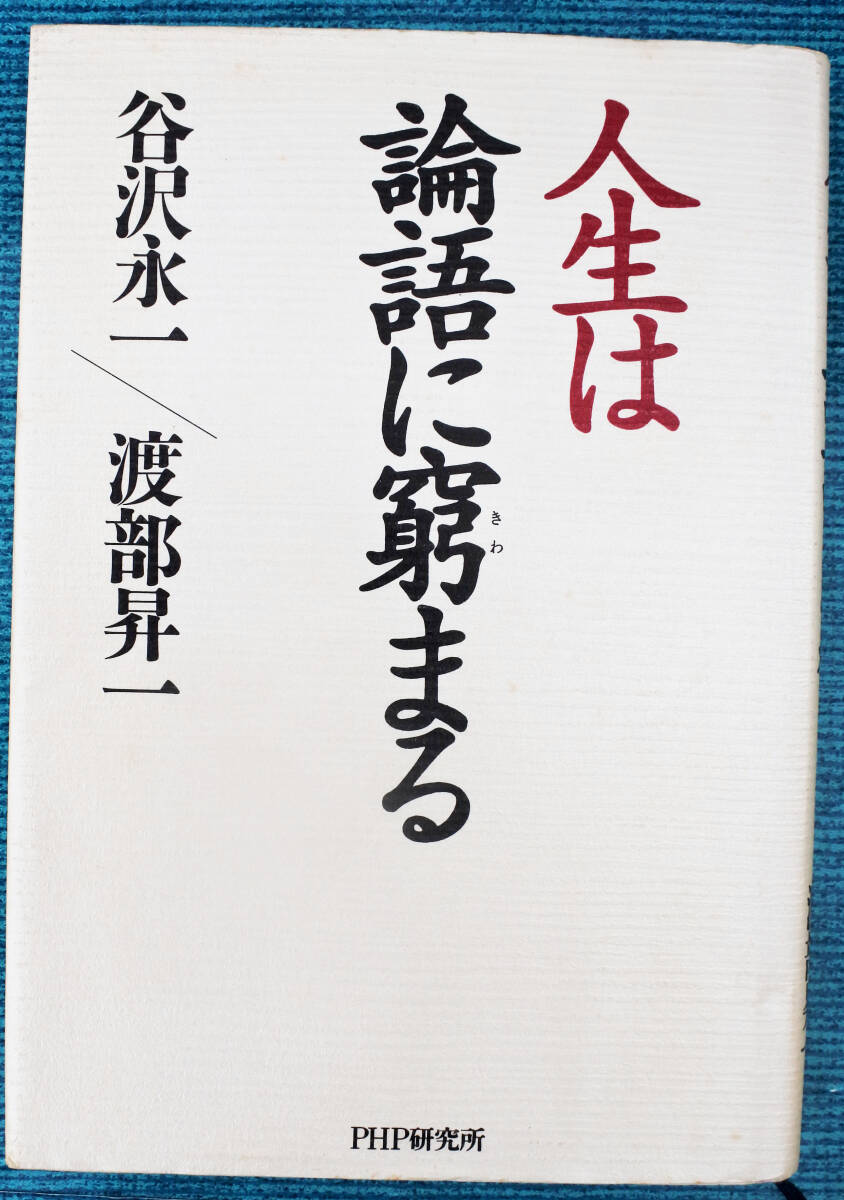 人生は
論語に窮まる
きわ
谷沢永一/渡部昇一
PHP研究所